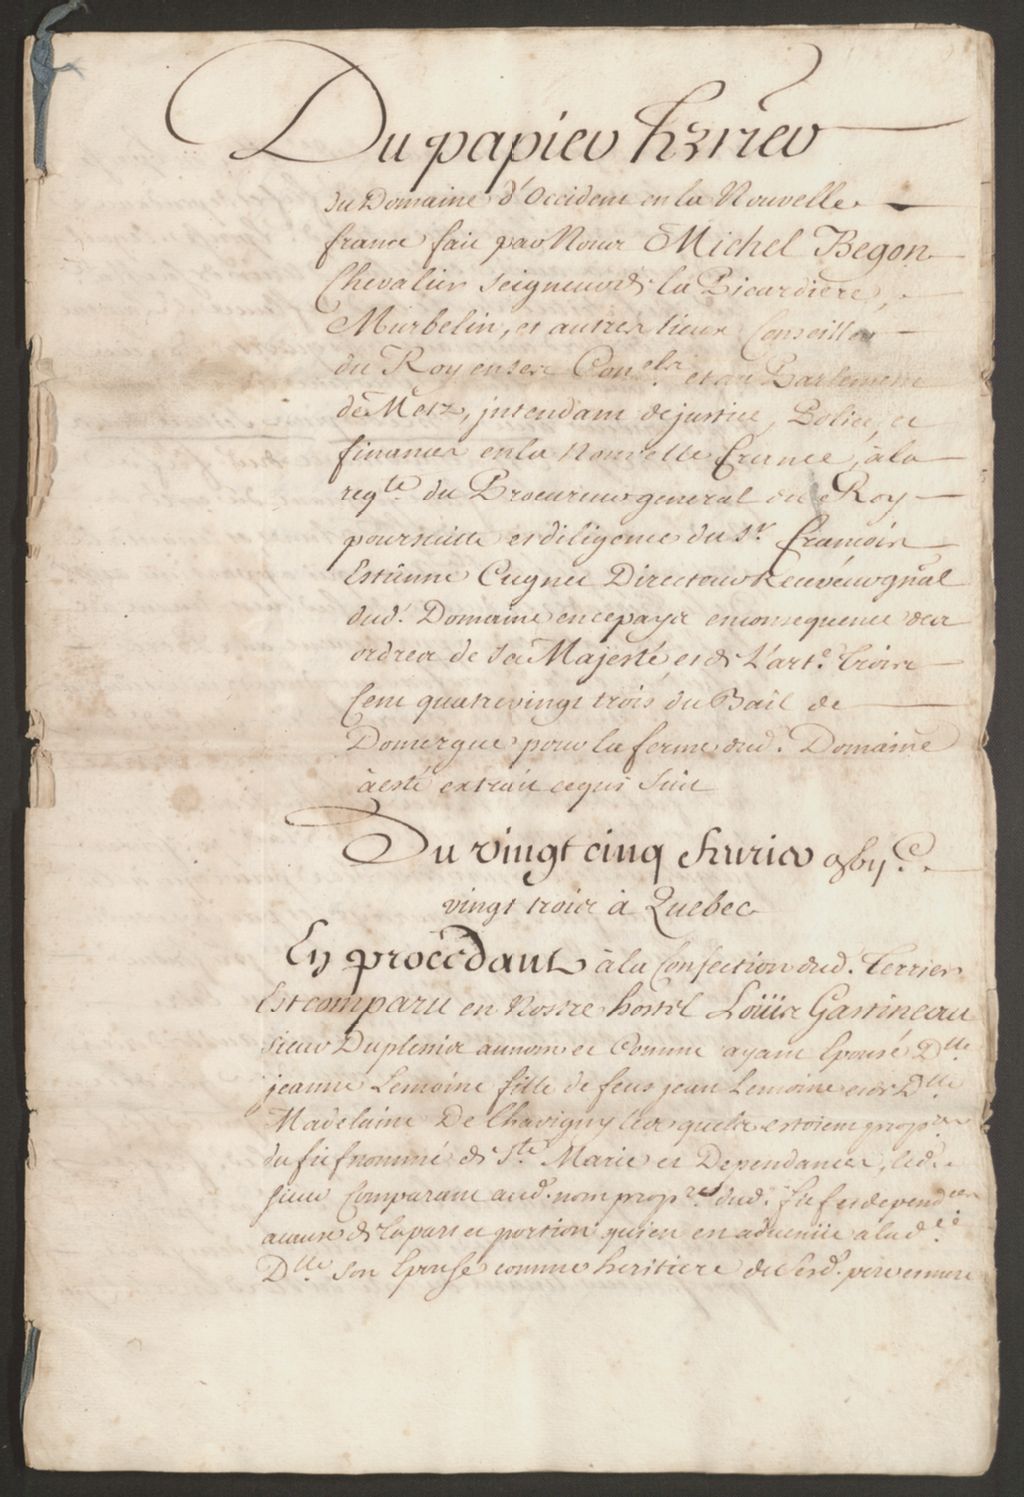 Du papier terrier
du Domaine d'Occident en la Nouvelle
france fait par Nous Michel Begon
Chevalier seigneur de la Picardiere,
Murbelin, et autres lieux Conseiller
du Roy en ses Con.els et au Parlement
de Metz, jntendant de justice, Police, et
finances en la Nouvelle france, à la
reqte. du Procureur general du Roy
poursuitte et diligence du Sr. francois
Estienne Cugnet Directeur Receveur gnal
dud. Domaine en ce pays en consequence des
ordres de sa Majesté et de L'art.e Trois
Cent quatre vingt trois du Bail de
Domergue pour la ferme dud. Domaine
à esté extrait ce qui suit
Du vingt cinq fevrier
vingt trois à Quebec
En procedant à la Confection dud. Terrier
Est comparu en Nostre hostel Loüis Gastineau
sieur Duplessis au nom et Comme ayant Epousé Dlle
jeanne Lemoine fille de feus jean Lemoine et de Dlle
Madelaine De Chavigny lesquels estoient prop.res
du fief nommé de Ste. Marie et Dependances, led.
sieur Comparant aud. nom prop.re dud. fief et depend.ces
acause de la part et portion qui en en advenüe à lad.e
Dlle. son Epouse comme heritiere de sesd. pere et mere